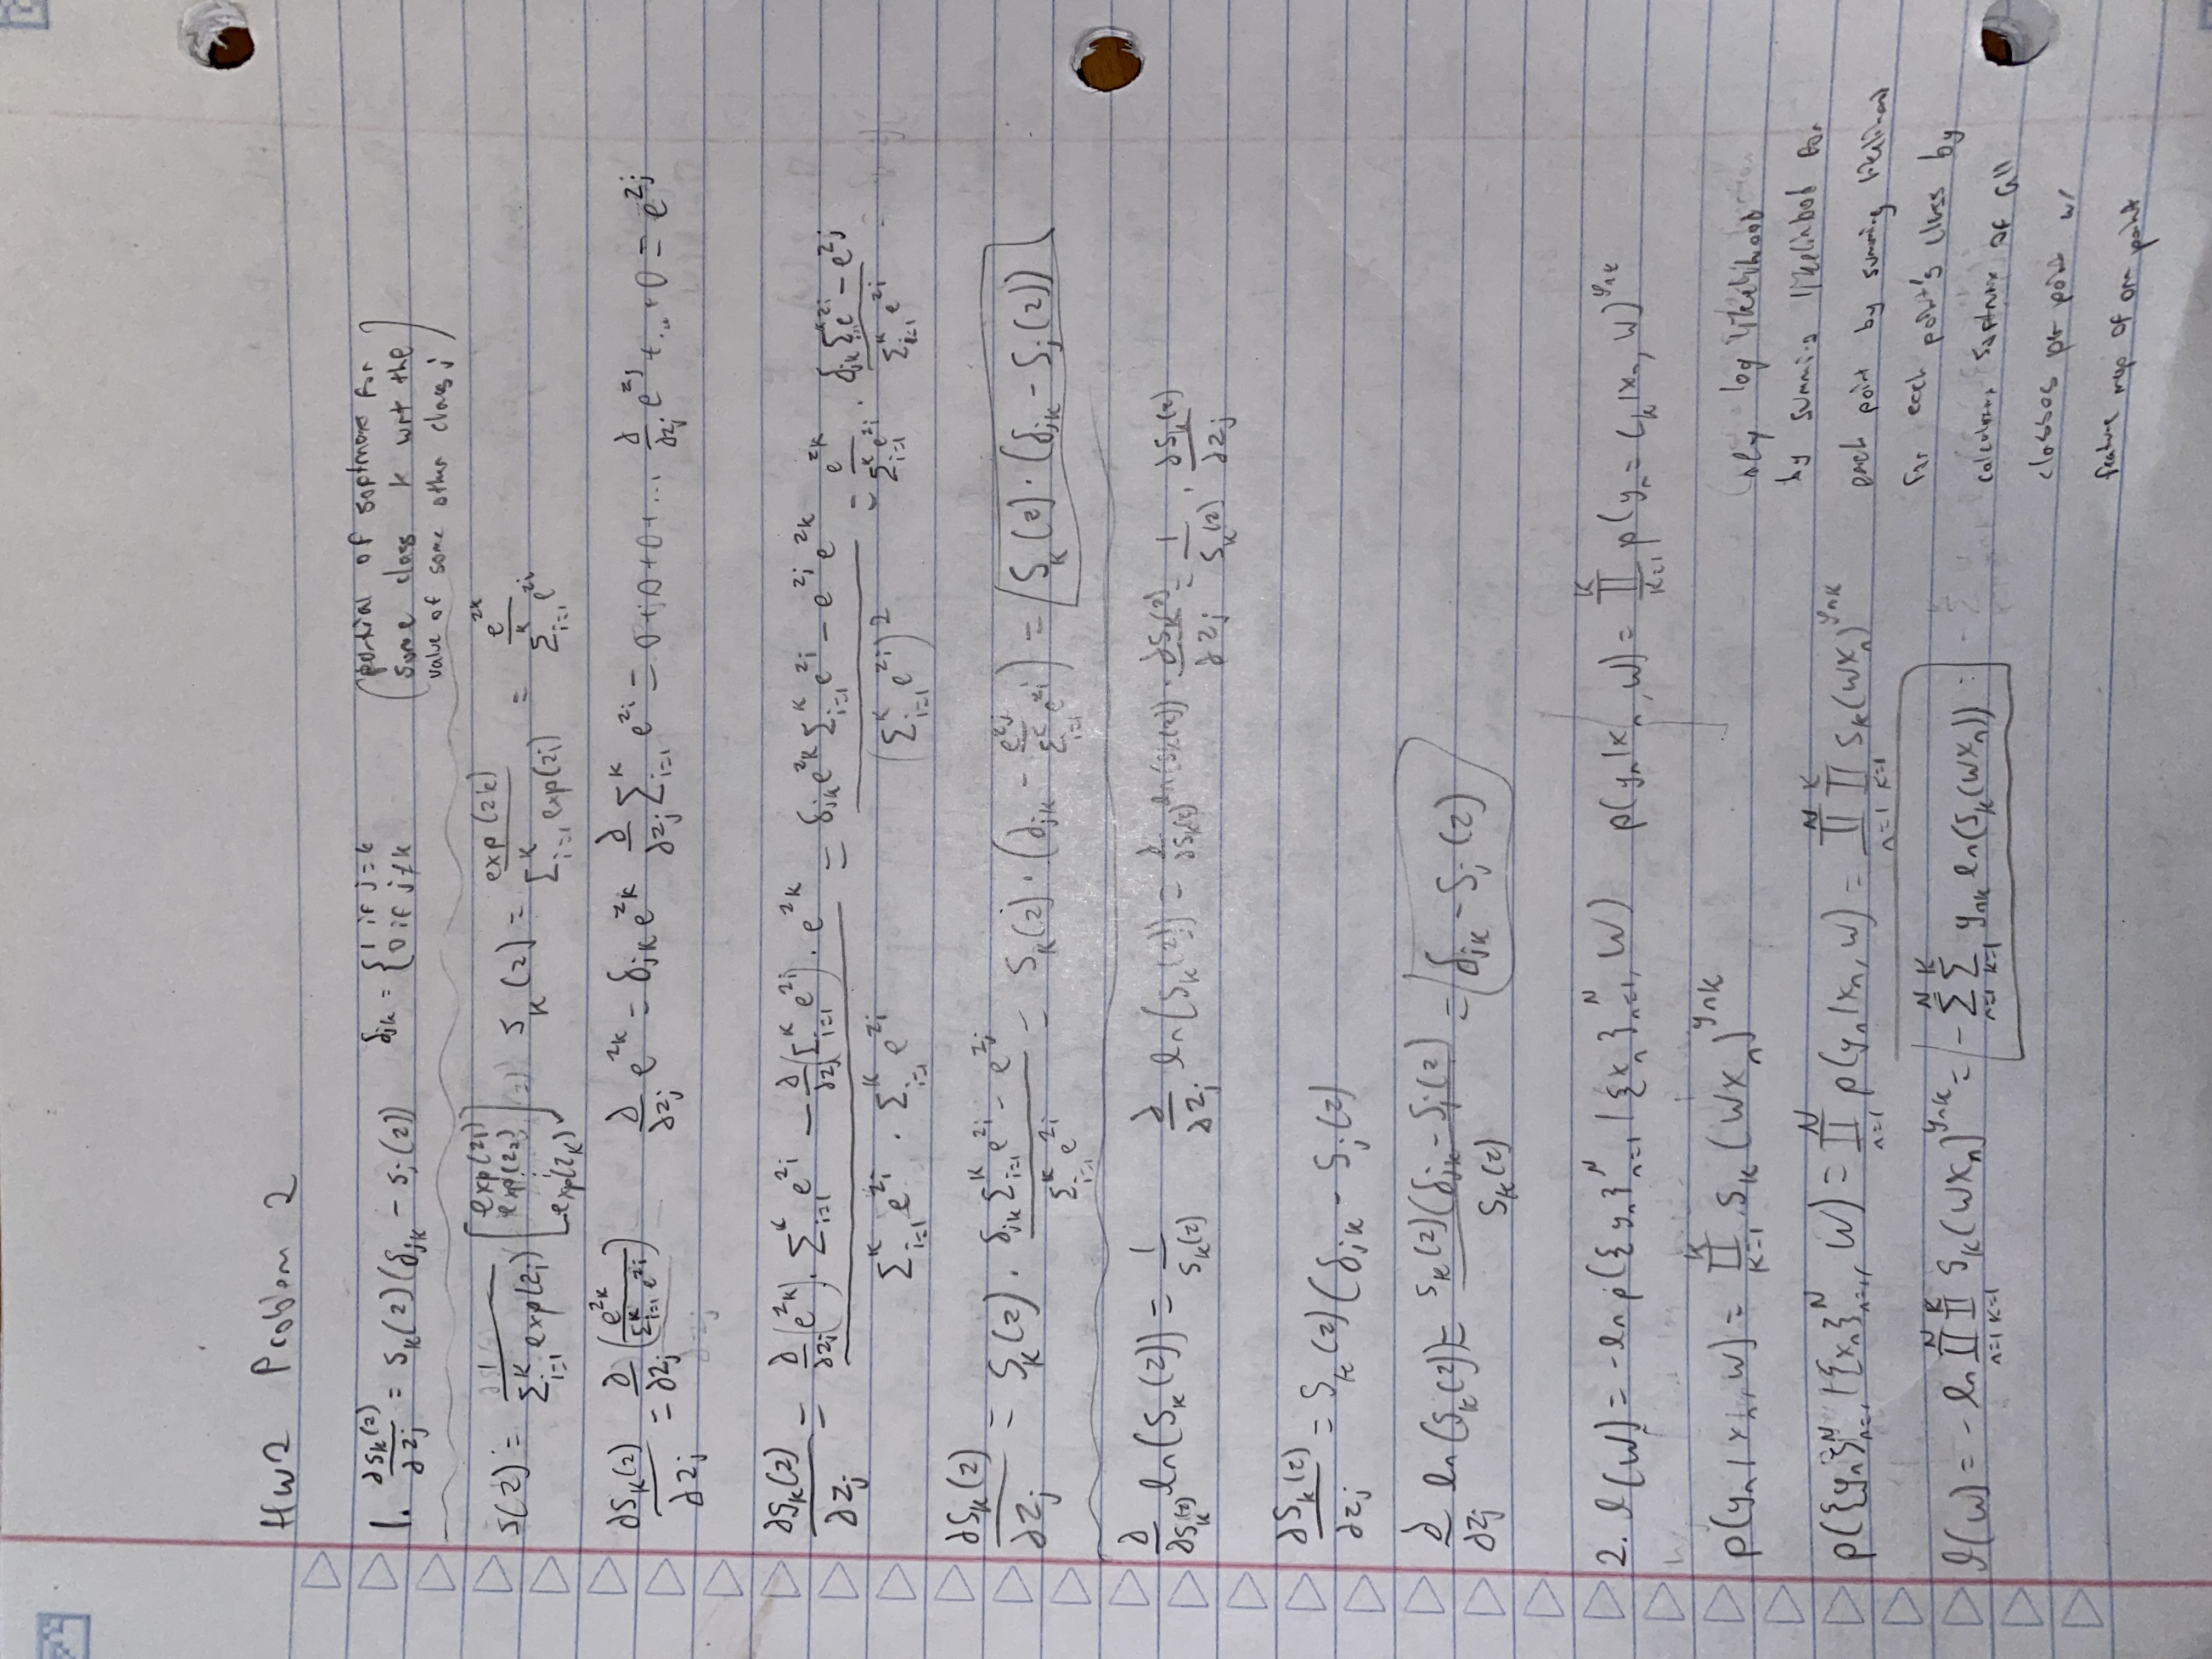 HW2 Problem 2
1. ∂S_k(z)/∂z_j = S_k(z)(δ_jk - S_j(z))   δ_jk = {1 if j=k, 0 if j≠k   (partial of softmax for some class k wrt the value of some other class j)
S(z) = 1/(Σ_{i=1}^K exp(z_i)) [exp(z_1) exp(z_2) ⋮ exp(z_K)]   S_k(z) = exp(z_k)/(Σ_{i=1}^K exp(z_i)) = e^{z_k}/(Σ_{i=1}^K e^{z_i})
∂S_k(z)/∂z_j = ∂/∂z_j (e^{z_k}/(Σ_{i=1}^K e^{z_i}))   ∂/∂z_j e^{z_k} = δ_jk e^{z_k}   ∂/∂z_j Σ_{i=1}^K e^{z_i} = 0+0+0+... ∂/∂z_j e^{z_j} +...+0 = e^{z_j}
∂S_k(z)/∂z_j = (∂/∂z_j(e^{z_k}) · Σ_{i=1}^K e^{z_i} - ∂/∂z_j(Σ_{i=1}^K e^{z_i}) · e^{z_k})/(Σ_{i=1}^K e^{z_i} · Σ_{i=1}^K e^{z_i}) = (δ_jk e^{z_k} Σ_{i=1}^K e^{z_i} - e^{z_j} e^{z_k})/(Σ_{i=1}^K e^{z_i})^2 = e^{z_k}/(Σ_{i=1}^K e^{z_i}) · (δ_jk Σ_{i=1}^K e^{z_i} - e^{z_j})/(Σ_{i=1}^K e^{z_i})
∂S_k(z)/∂z_j = S_k(z) · (δ_jk Σ_{i=1}^K e^{z_i} - e^{z_j})/(Σ_{i=1}^K e^{z_i}) = S_k(z) · (δ_jk - e^{z_j}/(Σ_{i=1}^K e^{z_i})) = S_k(z) · (δ_jk - S_j(z))
∂/∂S_k(z) ln(S_k(z)) = 1/S_k(z)   ∂/∂z_j ln(S_k(z)) = ∂/∂S_k(z) ln(S_k(z)) · ∂S_k(z)/∂z_j = 1/S_k(z) · ∂S_k(z)/∂z_j
∂S_k(z)/∂z_j = S_k(z)(δ_jk - S_j(z)
∂/∂z_j ln(S_k(z)) = S_k(z)(δ_jk - S_j(z)/S_k(z) = δ_jk - S_j(z)
2. ℓ(W) = -ln p({y_n}_{n=1}^N | {x_n}_{n=1}^N, W)   p(y_n|x_n, W) = ∏_{k=1}^K p(y_n = C_k|x_n, W)^{y_nk}
p(y_n|x_n, W) = ∏_{k=1}^K S_k(Wx_n)^{y_nk}
p({y_n}_{n=1}^N | {x_n}_{n=1}^N, W) = ∏_{n=1}^N p(y_n|x_n, W) = ∏_{n=1}^N ∏_{k=1}^K S_k(Wx_n)^{y_nk}
ℓ(W) = -ln ∏_{n=1}^N ∏_{k=1}^K S_k(Wx_n)^{y_nk} = -Σ_{n=1}^N Σ_{k=1}^K y_nk ln(S_k(Wx_n))
log likelihood
by summing likelihood for
each point by summing likelihood
for each point's class by
softmax of all
classes per point w/
feature map of one point